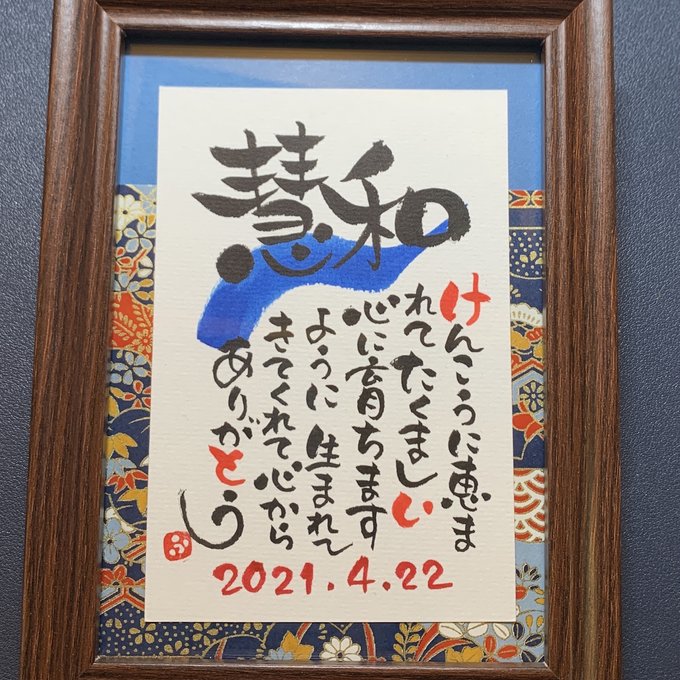 慧和
けんこうに恵ま
れてたくましい
心に育ちます
ように生まれて
きてくれて心から
ありがとう
2021.4.22